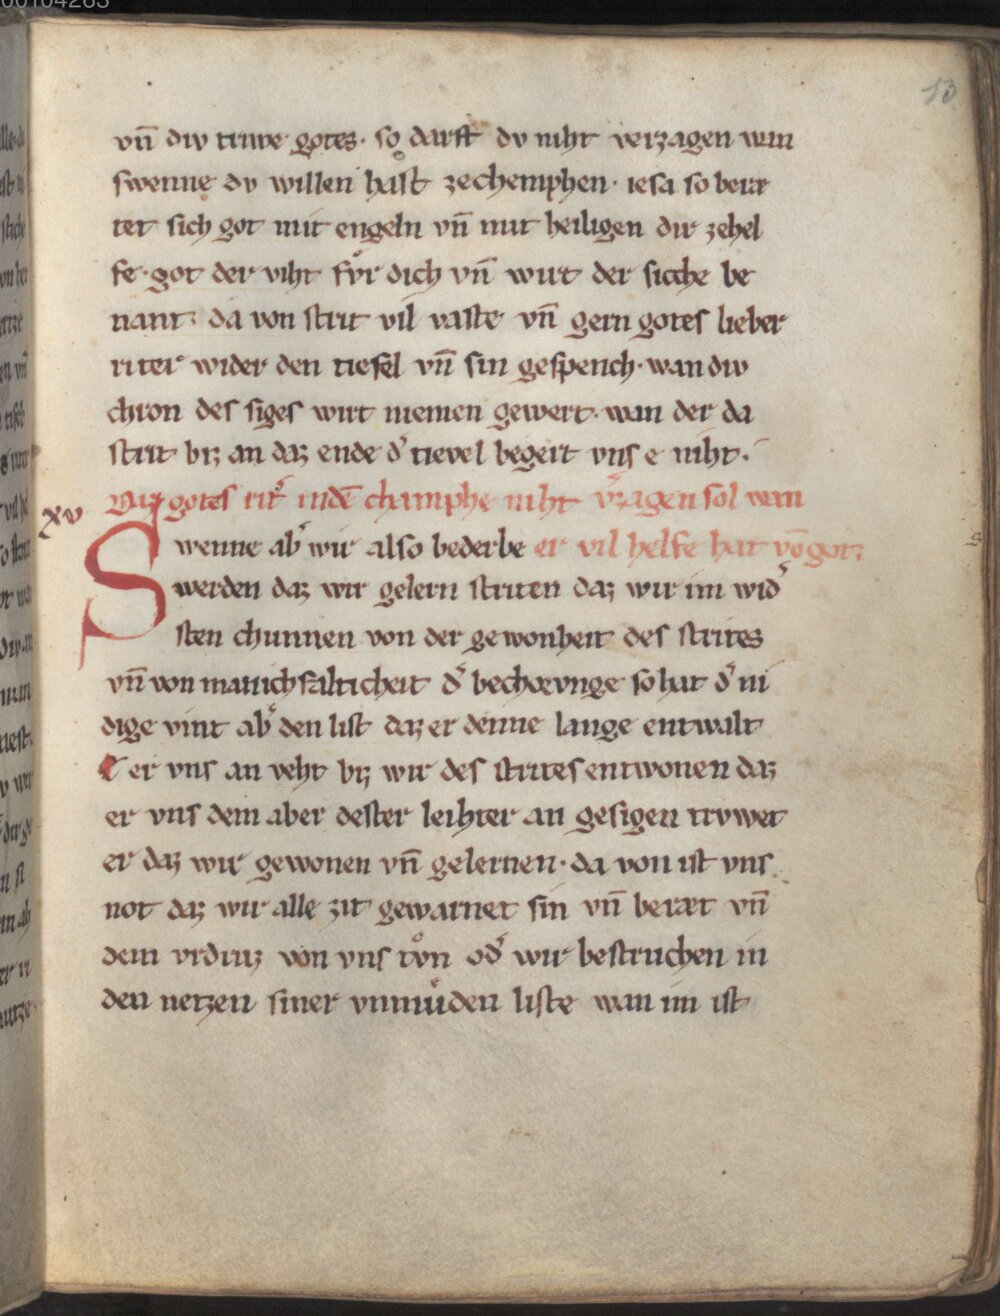 13
vn̄ div triwe gotes· so darft dv niht verzagen wan
swenne dv willen hast zechemphen· iesa so berær
tet sich got mit engeln vn̄ mit heiligen dir zehel
fe· got der viht fvͤr dich vn̄ wirt der sicche be
nant· da von strit vil vaste vn̄ gern gotes lieber
riter wider den tiefel vn̄ sin gespench· wan div
chron des siges wirt niemen gewert· wan der da
strit biz an daz ende d̾ tievel begert vns e niht·
xv Daz gotes rit̾ indē champhe niht v̾zagen sol wan
Swenne ab̾ wir also bederbe er vil helfe hat vō got·
werden daz wir gelern striten daz wir im wid̾
sten chunnen von der gewonheit des strites
vn̄ von manichfalticheit d̾ bechorvnge so hat d̾ ni
dige vint ab̾ den list daz er denne lange entwalt
E er vns an veht biz wir des strites entwonen daz
er vns dem aber dester leihter an gesigen trvwet
er daz wir gewonen vn̄ gelernen· da von ist vns
not daz wir alle zit gewarnet sin vn̄ beræt vn̄
dem vrdruz von vns tvͦn od̾ wir bestruchen in
den netzen siner vnmuͤden liste wan im ist